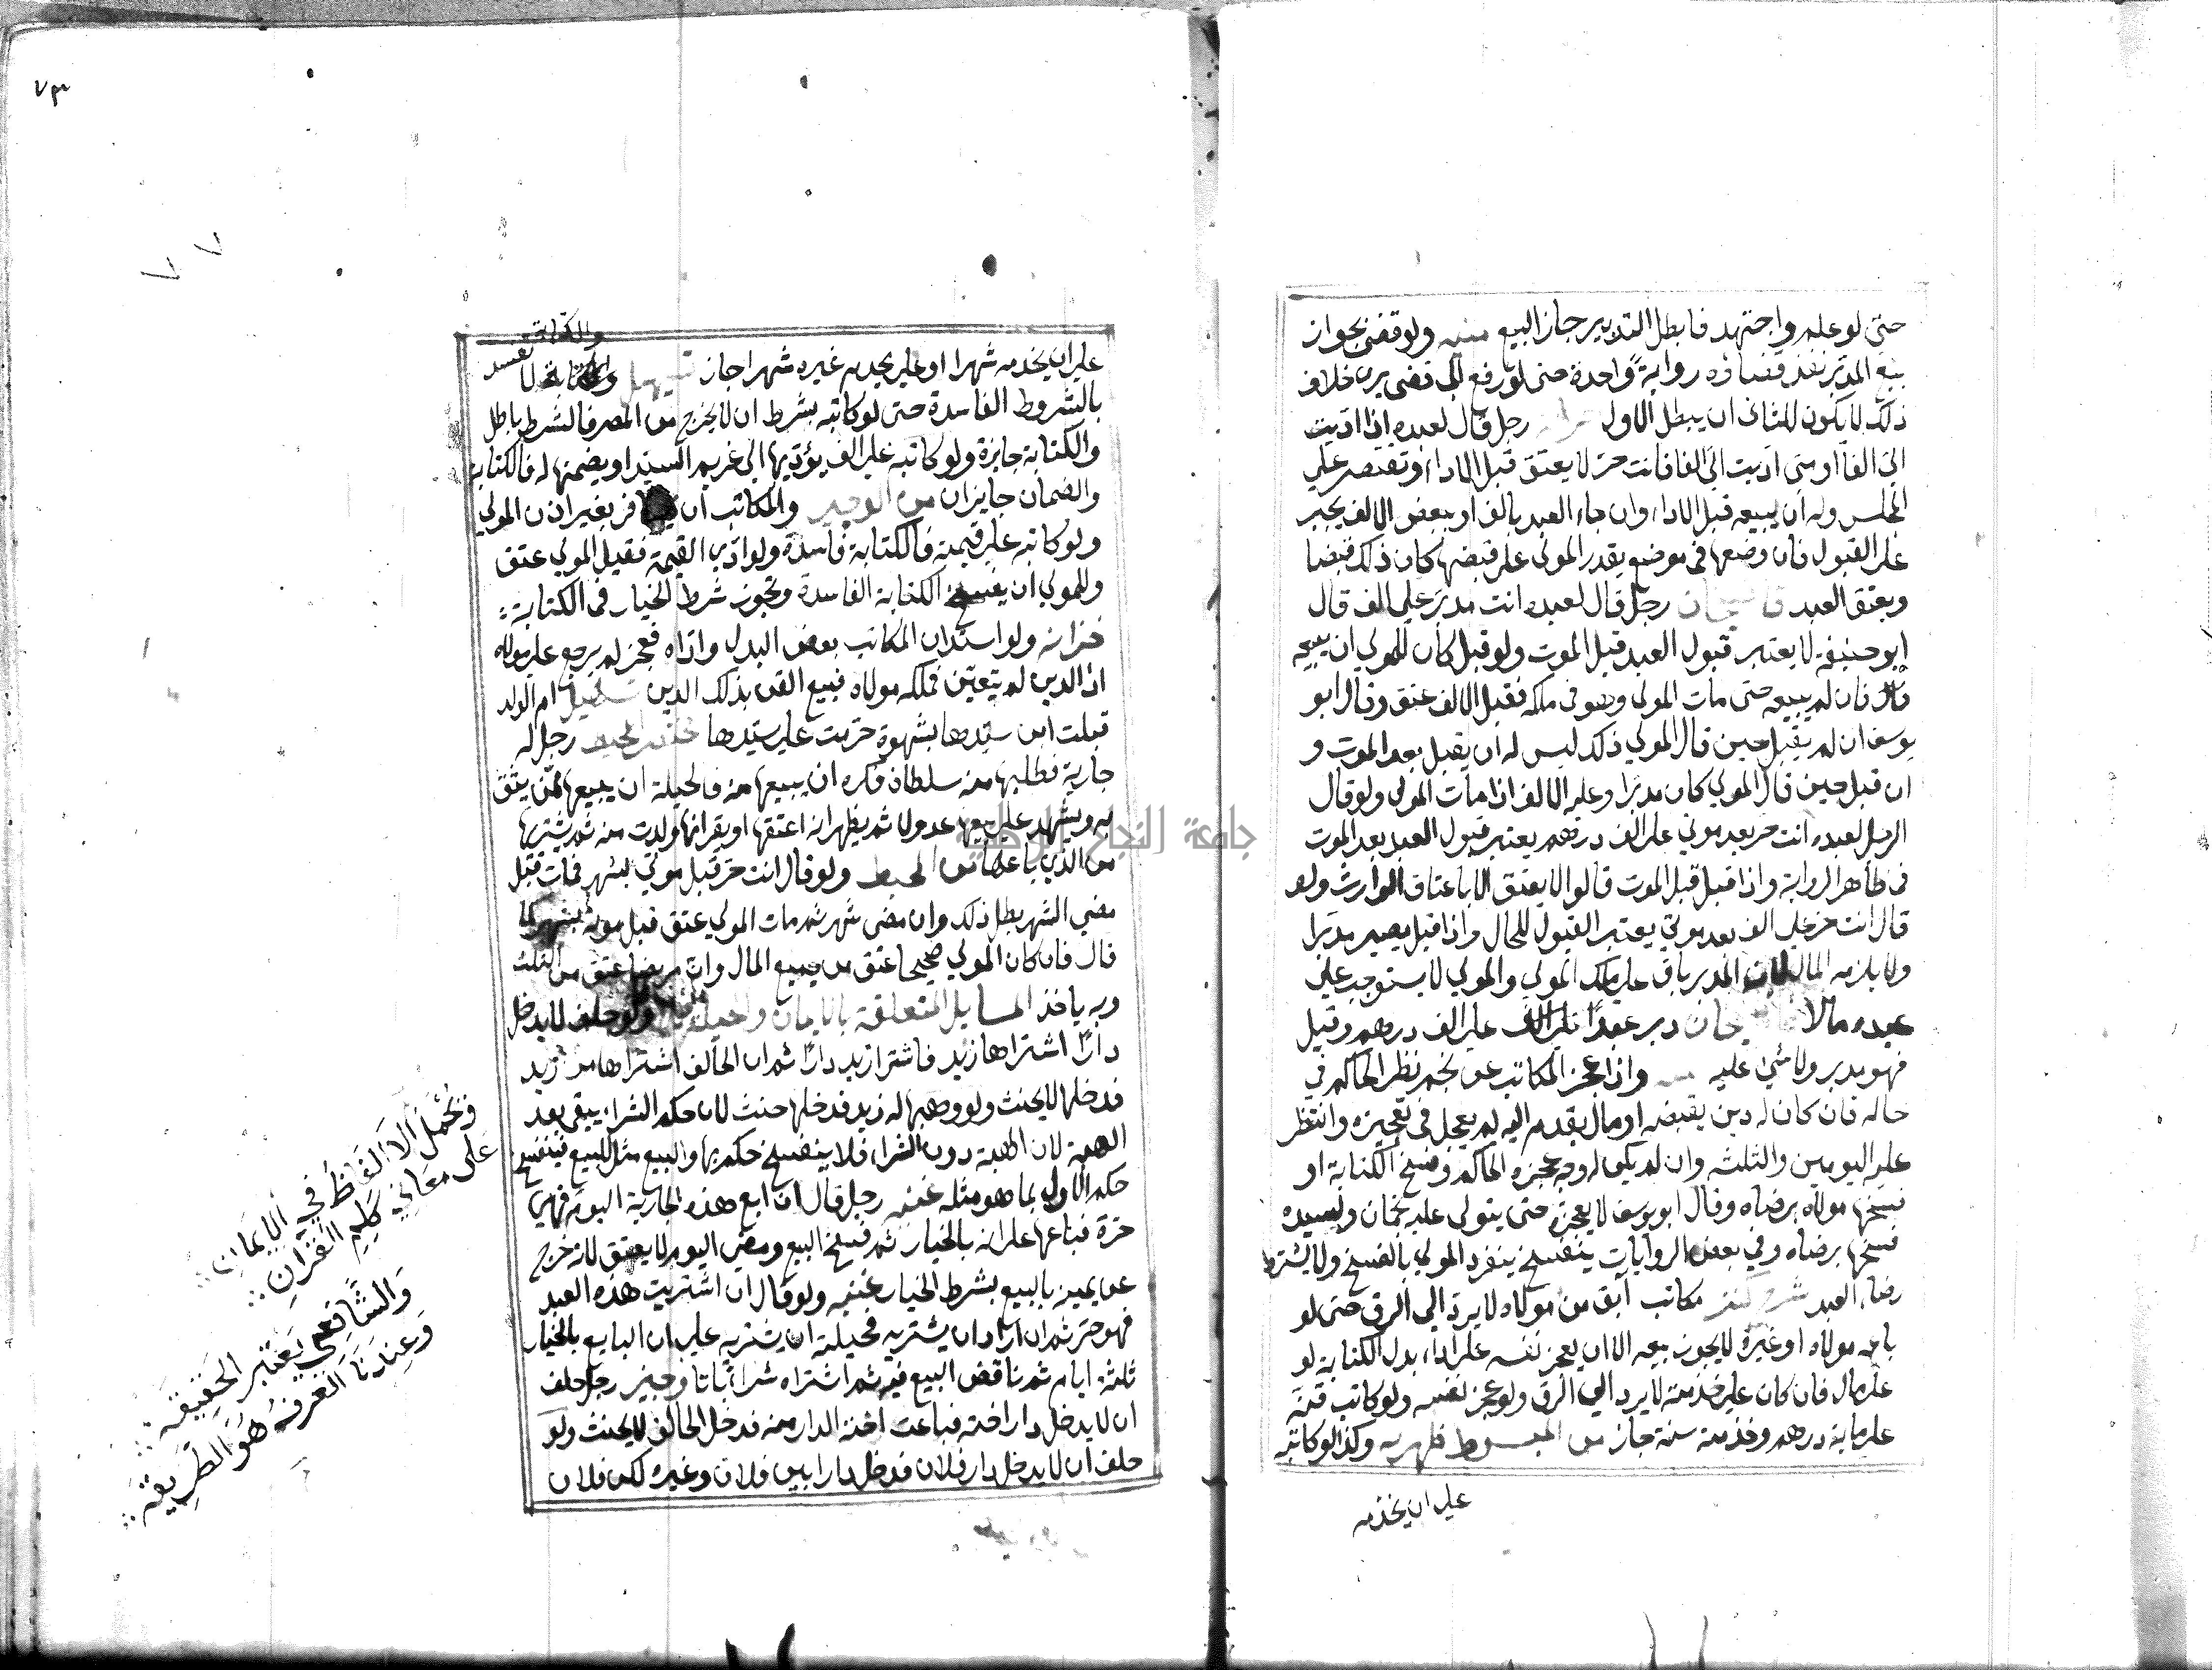 حتى لو علم واجتهد فابطل التدبير جاز البيع منيه ولو قضى بجواز
بيع المدبر نفذ قضاؤه رواية واحدة حتى لو رفع الى قضى يرى خلاف
ذلك لا يكون للثانى ان يبطل الاول رجل قال لعبده اذا اديت
الىّ الفا او متى اديت الىّ الفا فانت حر لا يعتق قبل الاداء وتقتصر على
المجلس وله ان يبيعه قبل الاداء وان جاء العبد بالف او ببعض الالف يجبر
على القبول فان وضعها فى موضع يقدر المولى على قبضها كان ذلك قبضا
ويعتق العبد قاضيخان رجل قال لعبده انت مدبر على الف قال
ابو حنيفة لا يعتبر قبول العبد قبل الموت ولو قبل كان للمولى ان يبيعه
قال فان لم يبيعه حتى مات المولى وهو فى ملكه فقبل الالف عتق وقال ابو
يوسف ان لم يقبل حين قال المولى ذلك ليس له ان يقبل بعد الموت و
ان قبل حين قال المولى كان مدبرا وعليه الالف اذا مات المولى ولو قال
الرجل لعبده انت حر بعد موتى على الف درهم يعتبر قبول العبد بعد الموت
فى ظاهر الرواية واذا قبل قبل الموت قالوا لا يعتق الا باعتاق الوارث ولو
قال انت حر على الف بعد موتى يعتبر القبول للحال واذا قبل يصير مدبرا
ولا يلزمه المال لان المدبر باق على ملك المولى والمولى لا يستوجب على
عبده مالا قاضيخان دبر عبدا على الف درهم وقبل
فهو مدبر ولا شئ عليه واذا عجز المكاتب عن نجم نظر الحاكم فى
حاله فان كان له دين يقبضه او مال يقدم اليه لم يعجل فى تعجيزه وانتظر
عليه اليومين والثلثه وان لم يكن له وجه عجزه الحاكم وفسخ الكتابة او
فسخها مولاه برضاه وقال ابو يوسف لا يعجزه حتى يتولى عليه نجمان ولسيده
فسخها برضاه وفى بعض الروايات ينفسخ ينفرد المولى بالفسخ ولا يشترط
رضاء العبد شرح كنز مكاتب آبق من مولاه لا يرد الى الرق حتى لو
باعه مولاه او غيره لا يجوز بيعه الا ان يعجز نفسه على اداء بدل الكتابة لو
على مال فان كان على خدمته لا يرد الى الرق ولو عجز نفسه ولو كاتب قنه
على ماية درهم وخدمته سنة جاز من المبسوط ظهريه وكذا لو كاتبه
على ان يخدمه
٧٣
على ان يخدمه شهرا او على يخدم غيره شهرا جاز تسهيل والكتابة لا تفسد
بالشروط الفاسدة حتى لو كاتبه بشرط ان لا يخرج من المصر فالشرط باطل
والكتابة جايزة ولو كاتبه على الف يؤديها الى غريم السيد او يضمنها له فالكتابة
والضمان جايزان من الوجيز والمكاتب ان يسافر بغير اذن المولى
ولو كاتبه على قيمته فالكتابة فاسدة ولو ادى القيمة فقبل المولى عتق
وللمولى ان يفسخ الكتابة الفاسدة وتجوز شرط الخيار فى الكتابة
خزانه ولو استدان المكاتب بعض البدل واداه فعجز لم يرجع على مولاه
اذ الدين لم يتعين فملكه مولاه فبيع القن بذلك الدين تسهيل ام الولد
قبلت ابن سيدها بشهوة حرمت على سيدها مختصر المحيط رجل له
جارية فطلبها منه سلطان فكره ان يبيعها منه فالحيلة ان يبيعها ممن يثق
به ويشهد على بيعها عدولا ثم يظهر انه اعتقها او يقر انها ولدت منه ثم يشتريها
من الذى باعها من المحيط ولو قال انت حر قبل موتى بشهر فمات قبل
مضى الشهر بطل ذلك وان مضى شهر ثم مات المولى عتق قبل موته بشهر كما
قال فان كان المولى صحيحا عتق من جميع المال وان مريضا عتق من الثلث
وبه ياخذ المسايل المتعلقة بالايمان ولو حلف لا يدخل
دارا اشتراها زيد فاشترا زيد دارا ثم ان الحالف اشتراها من زيد
فدخلها لا يحنث ولو وهبها له زيد فدخلها حنث لان حكم الشراء يبقى بعد
الهبة لان الهبة دون الشراء فلا ينفسخ حكمه بها والبيع مثل البيع فينفسخ
حكم الاول بما هو مثله غنيه رجل قال ان ابع هذه الجارية اليوم فهى
حرة فباعها على انه بالخيار ثم فسخ البيع ومضى اليوم لا يعتق لانه خرج
عن يمينه بالبيع بشرط الخيار غنيه ولو قال ان اشتريت هذه العبد
فهو حر ثم ان اراد ان يشتريه فحيلته ان يشتريه على ان البايع بالخيار
ثلثة ايام ثم ناقض البيع فيه ثم اشتراه شراء باتا وجيز رجل حلف
ان لا يدخل دار اخته فباعت اخته الدار منه فدخل الحالف لا يحنث ولو
حلف ان لا يدخل دار فلان فدخل دارا بين فلان وغيره لكن فلان
وتحمل الالفاظ في الايمان
على معاني كلم القرآن
والشافعي يعتبر الحقيقة
وعندنا العرف هو الطريقة
جامعة النجاح الوطنية